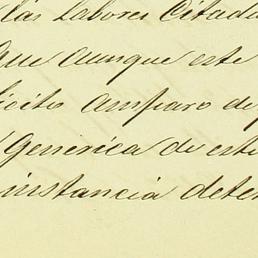 las labores citada
que aunque este
licito amparo de
Generica de este
instancia dete